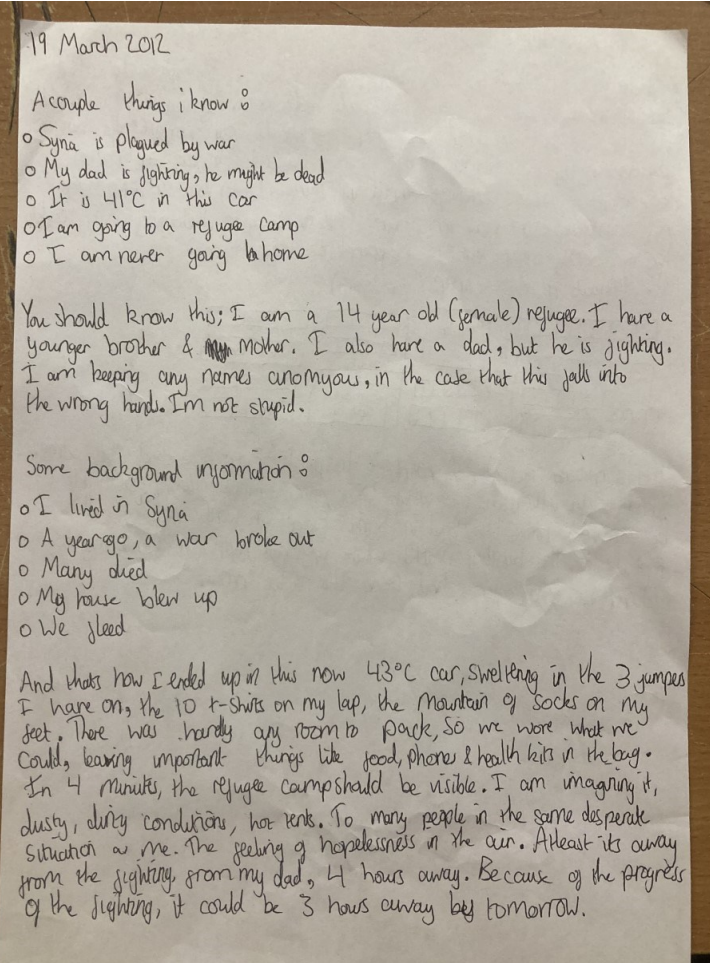 19 March 2012
A couple things i know :
o Syria is plagued by war
o My dad is fighting, he might be dead
o It is 41°C in this car
o I am going to a refugee camp
o I am never going home
You should know this; I am a 14 year old (female) refugee. I have a
younger brother & mother. I also have a dad, but he is fighting.
I am keeping any names anomyous, in the case that this falls into
the wrong hands. I'm not stupid.
Some background information :
o I lived in Syria
o A year ago, a war broke out
o Many died
o My house blew up
o We fleed
And thats how I ended up in this now 43°C car, sweltering in the 3 jumpers
I have on, the 10 t-shirts on my lap, the mountain of socks on my
feet. There was hardly any room to pack, so we wore what we
could, leaving important things like food, phones & health kits in the bag.
In 4 minutes, the refugee camp should be visible. I am imagining it,
dusty, dirty conditions, hot tents. To many people in the same desperate
situation as me. The feeling of hopelessness in the air. Atleast its away
from the fighting, from my dad, 4 hours away. Because of the progress
of the fighting, it could be 3 hours away by tomorrow.